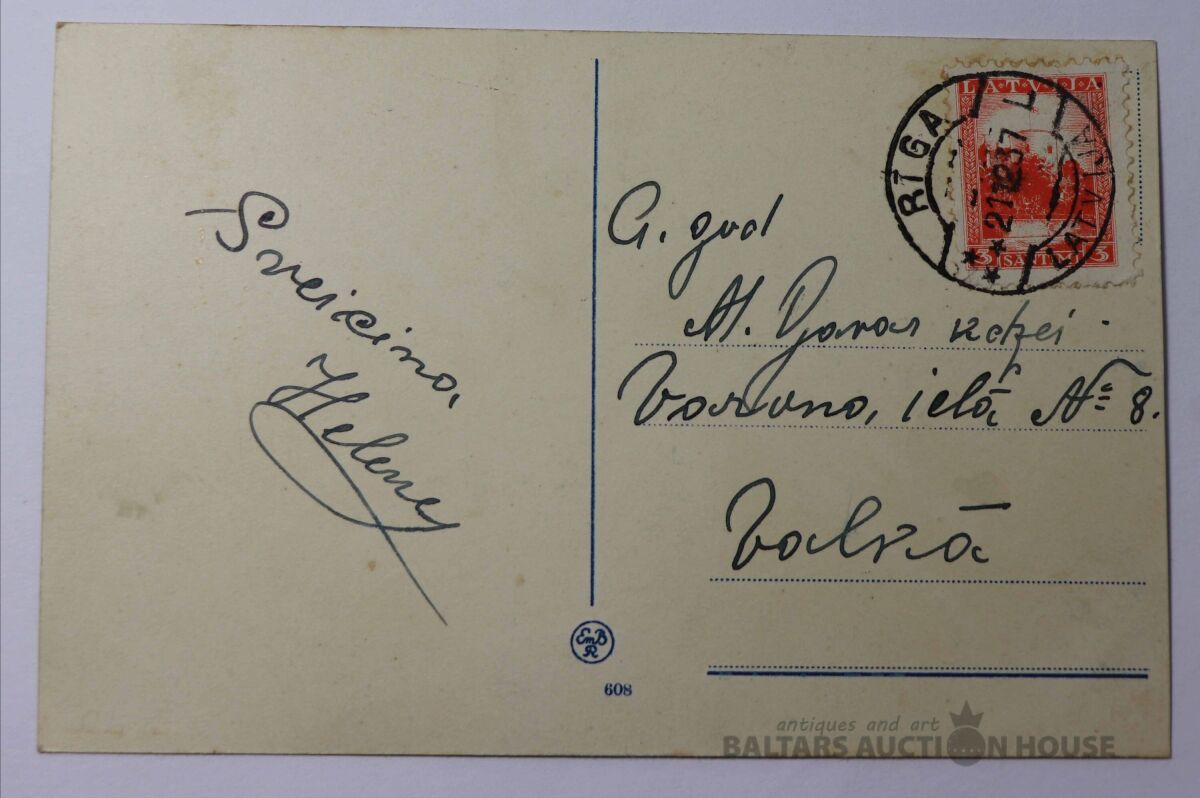 Sveicina,
Helene
LATVIJA
3 SANTIMI 3
RĪGA
LATVIJA
21 12 37
A. god
M. Garas kdzei.
Varoņa, ielā № 8.
Valkā
EmB
R
608
antiques and art
BALTARS AUCTION HOUSE